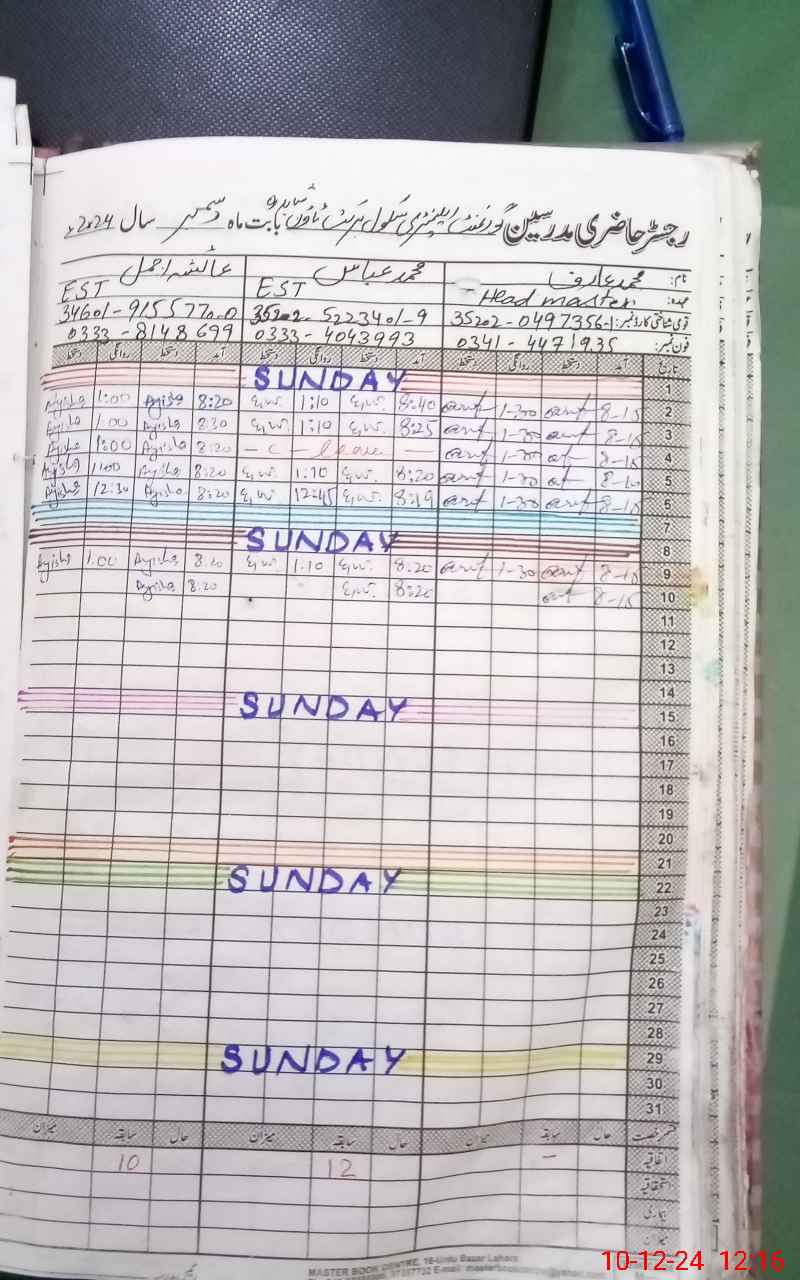 رجسٹر حاضری مدرسین گورنمنٹ ایلیمنٹری سکول ٹاؤن بابت ماہ دسمبر سال 2024ء
نام: محمد عارف محمد عباس عائشہ اجمل
عہدہ: Head master EST EST
قومی شناختی کارڈ نمبر: 35202-0497356-1 35202-5223401-9 34601-9155770-0
فون نمبر: 0341-4471935 0333-4043993 0333-8148699
تاریخ آمد دستخط روانگی دستخط آمد دستخط روانگی دستخط آمد دستخط روانگی دستخط
1 SUNDAY
2 8-15 1-30 8:40 1:10 8:20 Ayisha 1:00 Ayisha
3 8-15 1-30 8:25 1:10 8:30 Ayisha 1:00 Ayisha
4 8-15 1-30 - C - leave - 8:20 Ayisha 1:00 Ayisha
5 8-10 1-30 8:20 1:10 8:20 Ayisha 1:00 Ayisha
6 8-15 1-30 8:19 12:45 8:20 Ayisha 12:30 Ayisha
7
8 SUNDAY
9 8-15 1-30 8:20 1:10 8:20 Ayisha 1:00 Ayisha
10 8-15 8:20 8:20 Ayisha
11
12
13
14
15 SUNDAY
16
17
18
19
20
21
22 SUNDAY
23
24
25
26
27
28
29 SUNDAY
30
31
قسم رخصت حال سابقہ میزان حال سابقہ میزان حال سابقہ میزان
اتفاقیہ - 12 10
استحقاقیہ
بیماری
میزان
MASTER BOOK CENTRE, 16-Urdu Bazar Lahore
10-12-24 12:16